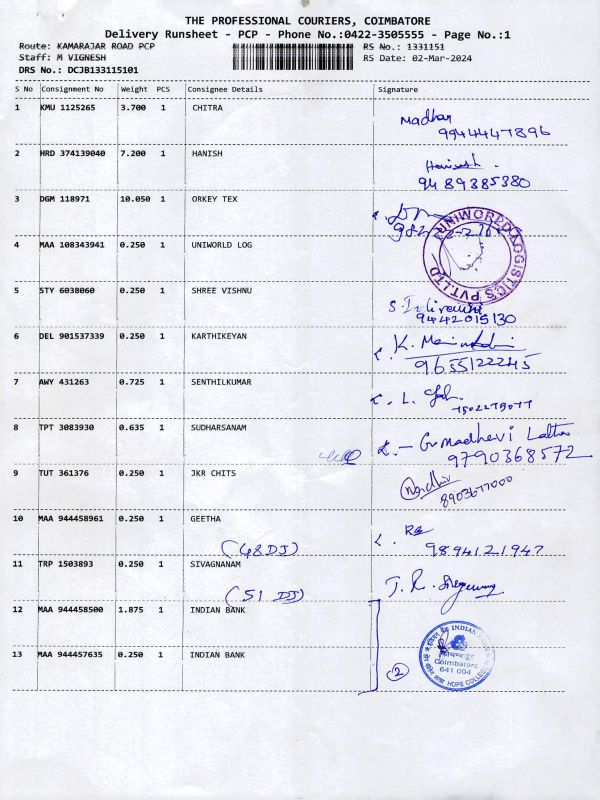 THE PROFESSIONAL COURIERS, COIMBATORE
Delivery Runsheet - PCP - Phone No.:0422-3505555 - Page No.:1
Route: KAMARAJAR ROAD PCP RS No.: 1331151
Staff: M VIGNESH RS Date: 02-Mar-2024
DRS No.: DCJB133115101
S No Consignment No Weight PCS Consignee Details Signature
1 KMU 1125265 3.700 1 CHITRA
Madhan
9944447896
2 HRD 374139040 7.200 1 HANISH
Hanish.
9489385380
3 DGM 118971 10.050 1 ORKEY TEX
UNIWORLD LOGISTICS PVT.LTD
4 MAA 108343941 0.250 1 UNIWORLD LOG
5 STY 6038060 0.250 1 SHREE VISHNU
9442015130
6 DEL 901537339 0.250 1 KARTHIKEYAN
9655122245
7 AWY 431263 0.725 1 SENTHILKUMAR
8 TPT 3083930 0.635 1 SUDHARSANAM
9790368572
9 TUT 361376 0.250 1 JKR CHITS
8903677000
10 MAA 944458961 0.250 1 GEETHA
(48DJ)
9894121947
11 TRP 1503893 0.250 1 SIVAGNANAM
(51 DJ)
12 MAA 944458500 1.875 1 INDIAN BANK
13 MAA 944457635 0.250 1 INDIAN BANK
2
INDIAN
Coimbatore
641 004
HOPE COLLEGE